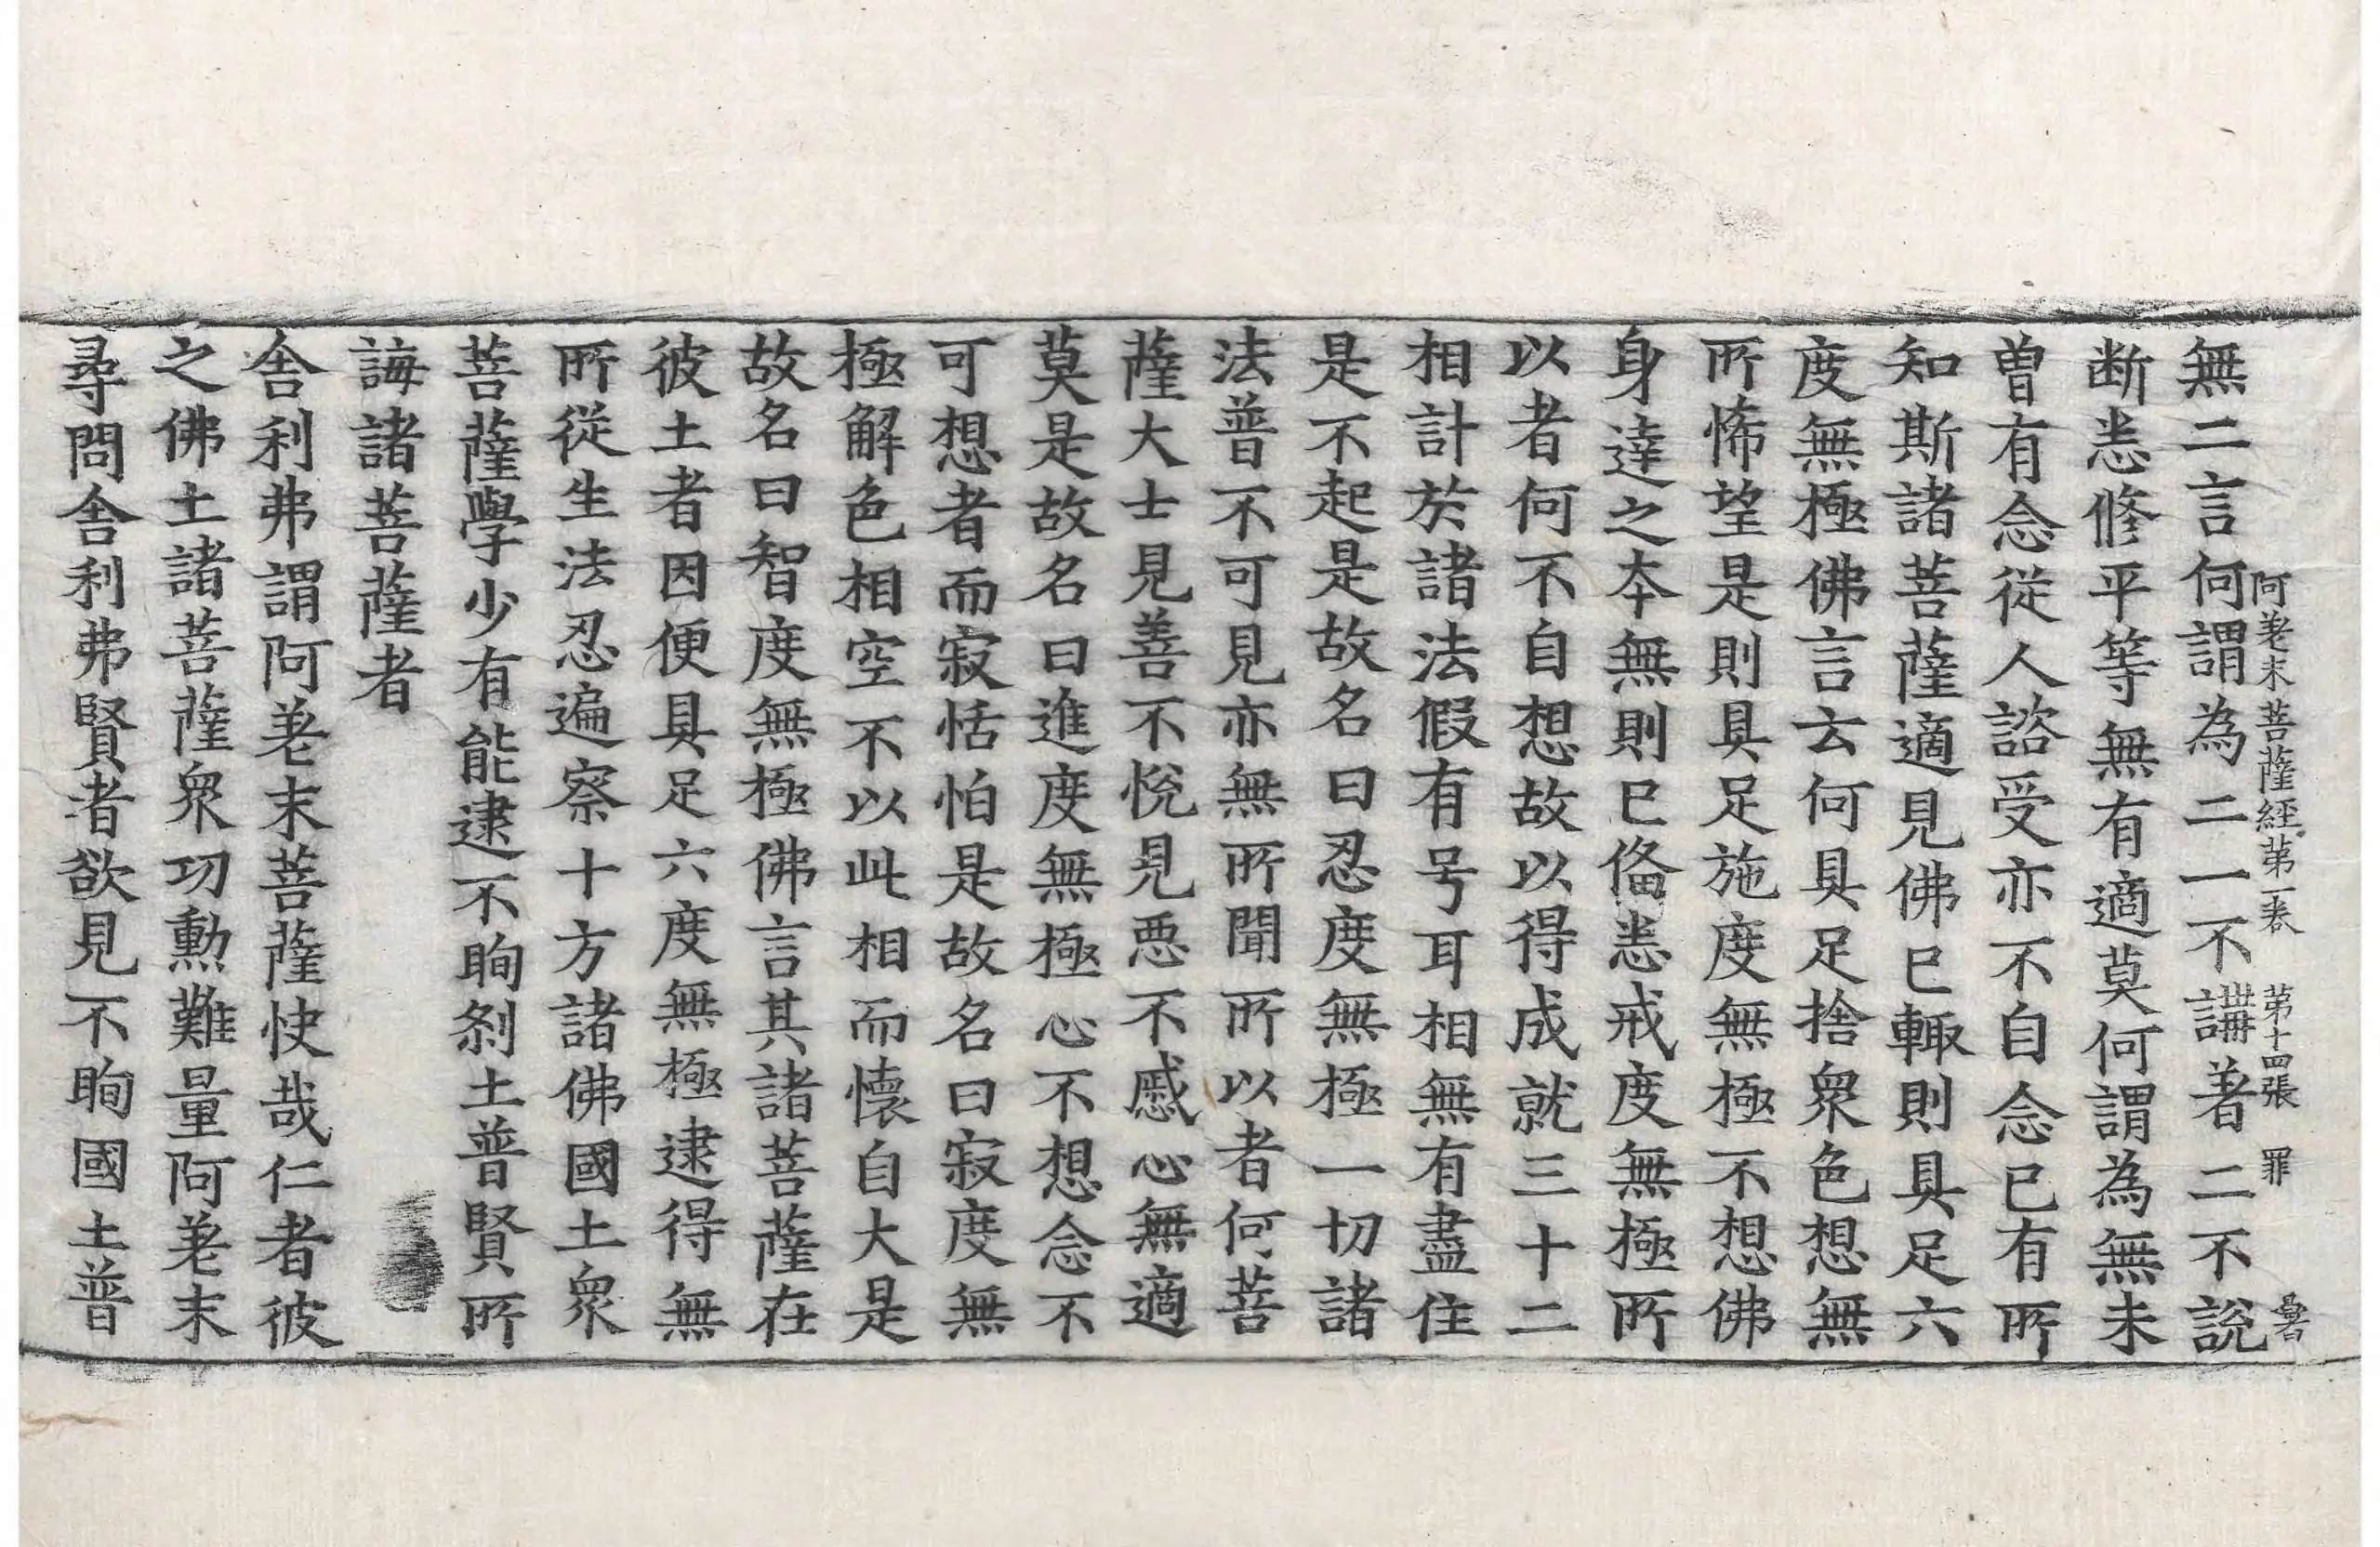 阿差末菩薩經第一卷 第十四張 罪
無二言何謂為二一不講著二不說
断恙修平等無有適莫何謂為無未
曽有念從人諮受亦不自念已有所
知斯諸菩薩適見佛已輙則具足六
度無極佛言云何具足捨衆色想無
所悕望是則具足施度無極不想佛
身達之本無則已俻恙戒度無極所
以者何不自想故以得成就三十二
相計於諸法假有号耳相無有盡住
是不起是故名曰忍度無極一切諸
法普不可見亦無所聞所以者何菩
薩大士見善不悅見悪不慼心無適
莫是故名曰進度無極心不想念不
可想者而寂恬怕是故名曰寂度無
極解色相空不以此相而懷自大是
故名曰智度無極佛言其諸菩薩在
彼土者因便具足六度無極逮得無
所從生法忍遍察十方諸佛國土衆
菩薩學少有能逮不眴剎土普賢所
誨諸菩薩者
舎利弗謂阿差末菩薩快哉仁者彼
之佛土諸菩薩衆功勲難量阿差末
尋問舎利弗賢者欲見不眴國土普